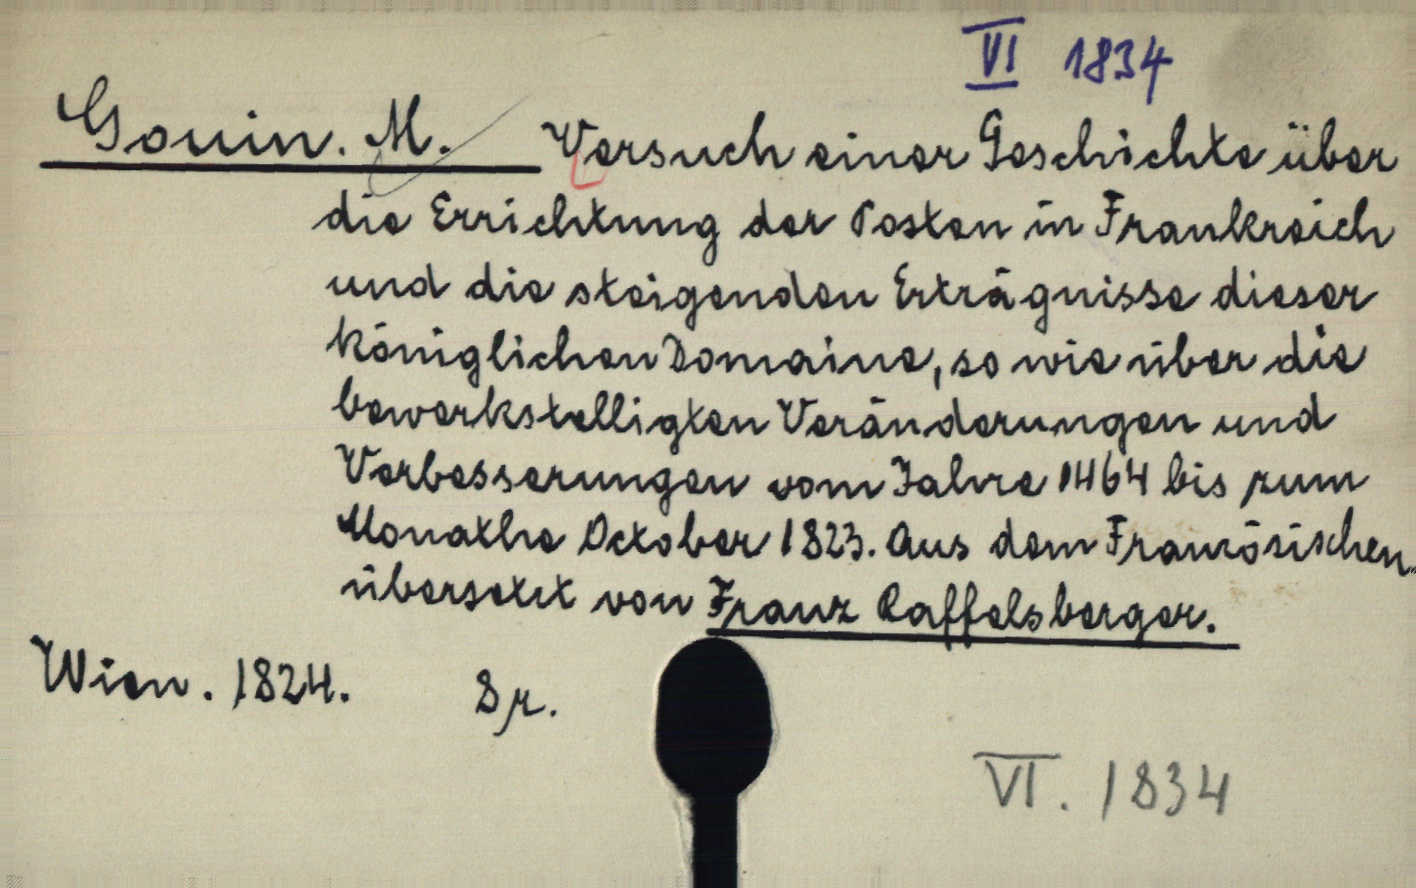 VI 1834
Gouin. M. Versuch einer Geschichte über
die Errichtung der Posten in Frankreich
und die steigenden Erträgnisse dieser
königlichen Domaine, so wie über die
bewerkstelligten Veränderungen und
Verbesserungen vom Jahre 1464 bis zum
Monathe October 1823. Aus dem Französischen
übersetzt von Franz Raffelsberger.
Wien. 1824. 8r.
VI. 1834